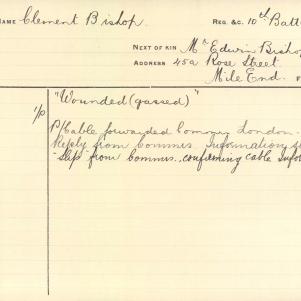 NAME Clement Bishop. REG. &C. 10th Batt
NEXT OF KIN Mr Edwin Bishop
ADDRESS 45a Rose Street.
Mile End. F
"Wounded (gassed)"
1/0 P/Cable forwarded London.
Reply from Commis. Information
"slip" from Commis., confirming cable Info